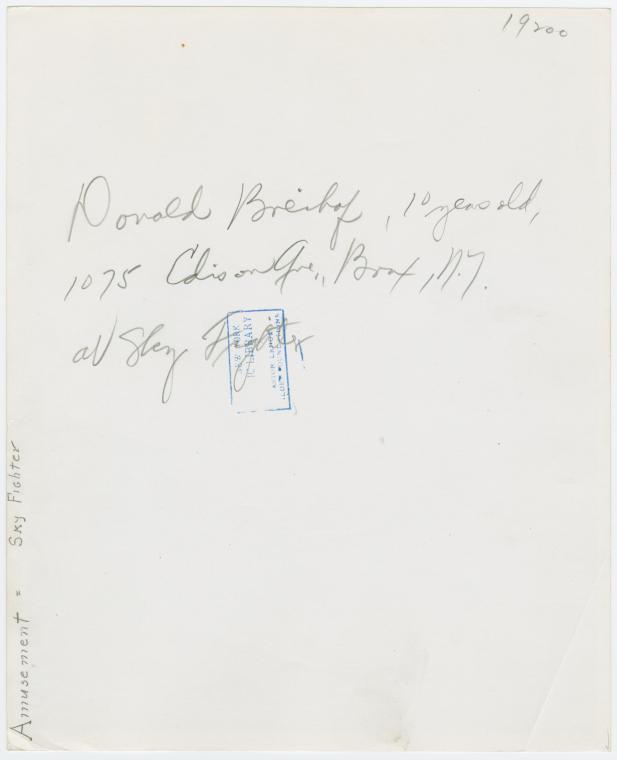 19200
Donald Breihof, 10 years old,
1075 Edison Ave., Bronx, N.Y.
at Sky Fighter
NEW YORK
IC LIBRARY
ASTOR LENOX
Amusement = Sky Fighter